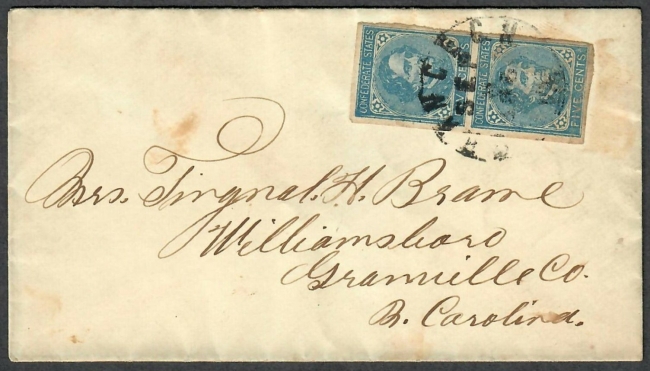 CONFEDERATE STATES FIVE CENTS
CONFEDERATE STATES FIVE CENTS
C. H.
SEP
Mrs. Tingnal. H. Brame
Williamsboro
Granville Co.
N. Carolina.